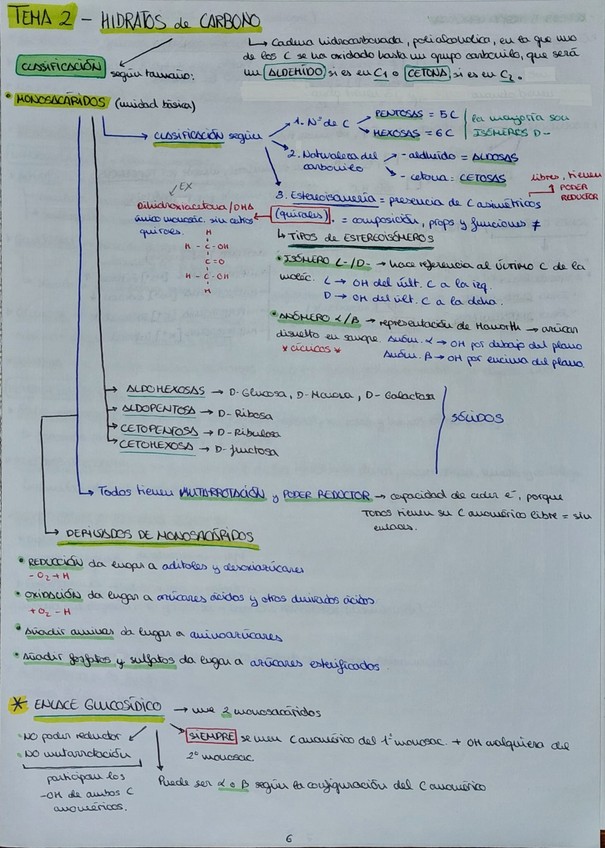 TEMA 2 - HIDRATOS de CARBONO
↳ Cadena hidrocarbonada, polialcoholica, en la que uno
de los C se ha oxidado hasta un grupo carbonilo, que será
un ALDEHÍDO si es en C1 o CETONA si es en C2.
CLASIFICACIÓN según tamaño:
• MONOSACÁRIDOS (unidad básica)
CLASIFICACIÓN según
1. Nº de C
PENTOSAS = 5C
HEXOSAS = 6C
la mayoría son
ISÓMEROS D-
2. Naturaleza del
carbonilo
- aldehído = ALDOSAS
- cetona: CETOSAS
libres, tienen
PODER
REDUCTOR
3. Estereoisomería = presencia de C asimétricos
(quirales). = composición, props y funciones ≠
EX
Dihidroxiacetona/DHA
único monosac. sin cetros
quirales.
H
H - C - OH
C = O
H - C - OH
H
↳ TIPOS de ESTEREOISÓMEROS
• ISÓMERO L-/D- → hace referencia al ÚLTIMO C de la
moléc. L → OH del últ. C a la izq.
D → OH del últ. C a la dcha.
• ANÓMERO α/β → representación de Haworth → azúcar
disuelto en sangre. Anóm. α → OH por debajo del plano
* CÍCLICOS *
Anóm. β → OH por encima del plano
ALDOHEXOSAS → D-Glucosa, D-Manosa, D-Galactosa
ALDOPENTOSA → D-Ribosa
CETOPENTOSA → D-Ribulosa
CETOHEXOSA → D-fructosa
SÓLIDOS
Todos tienen MUTARROTACIÓN y PODER REDUCTOR → capacidad de ceder e⁻, porque
TODOS tienen su C anomérico libre = sin
enlaces.
DERIVADOS DE MONOSACÁRIDOS
• REDUCCIÓN da lugar a aditoles y desoxiazúcares
- O2 + H
• OXIDACIÓN da lugar a azúcares ácidos y otros derivados ácidos
+ O2 - H
• Añadir aminas da lugar a aminoazúcares
• Añadir fosfatos y sulfatos da lugar a azúcares esterificados
* ENLACE GLUCOSÍDICO → une 2 monosacáridos
• NO poder reductor
• NO mutarrotación
SIEMPRE se unen C anomérico del 1º monosac + OH cualquiera del
2º monosac.
participan los
-OH de ambos C
anoméricos.
Puede ser α o β según la configuración del C anomérico
6